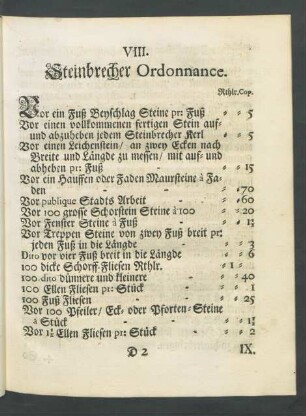 VIII.
Steinbrecher Ordonnance.
Rthlr. Cop.
Vor ein Fuß Beyschlag Steine pr: Fuß ⸗ ⸗ 5
Vor einen vollkommenen fertigen Stein auf⸗
und abzuheben jedem Steinbrecher Kerl ⸗ ⸗ 5
Vor einen Leichenstein / an zwey Ecken nach
Breite und Längde zu messen / mit auf⸗ und
abheben pr: Fuß ⸗ ⸗ 15
Vor ein Hauffen oder Faden Maursteine à Fa⸗
den - - ⸗ ⸗ 70
Vor publique Stadts Arbeit - ⸗ ⸗ 60
Vor 100 grosse Schorstein Steine à 100 ⸗ ⸗ 20
Vor Fenster Steine à Fuß ⸗ ⸗
Vor Treppen Steine von zwey Fuß breit pr:
jeden Fuß in die Längde - ⸗ ⸗ 3
Dito vor vier Fuß breit in die Längde ⸗ ⸗ 6
100 dicke Schorff⸗Fliesen Rthlr. ⸗ 1 ⸗
100 dito dünnere und kleinere - ⸗ ⸗ 40
100 Ellen Fliesen pr: Stück - ⸗ ⸗ 1
100 Fuß Fliesen - - ⸗ ⸗ 25
Vor 100 Pfeiler / Eck⸗ oder Pforten⸗Steine
à Stück - - ⸗ ⸗
Vor Ellen Fliesen pr: Stück - ⸗ ⸗ 2
D 2 IX.